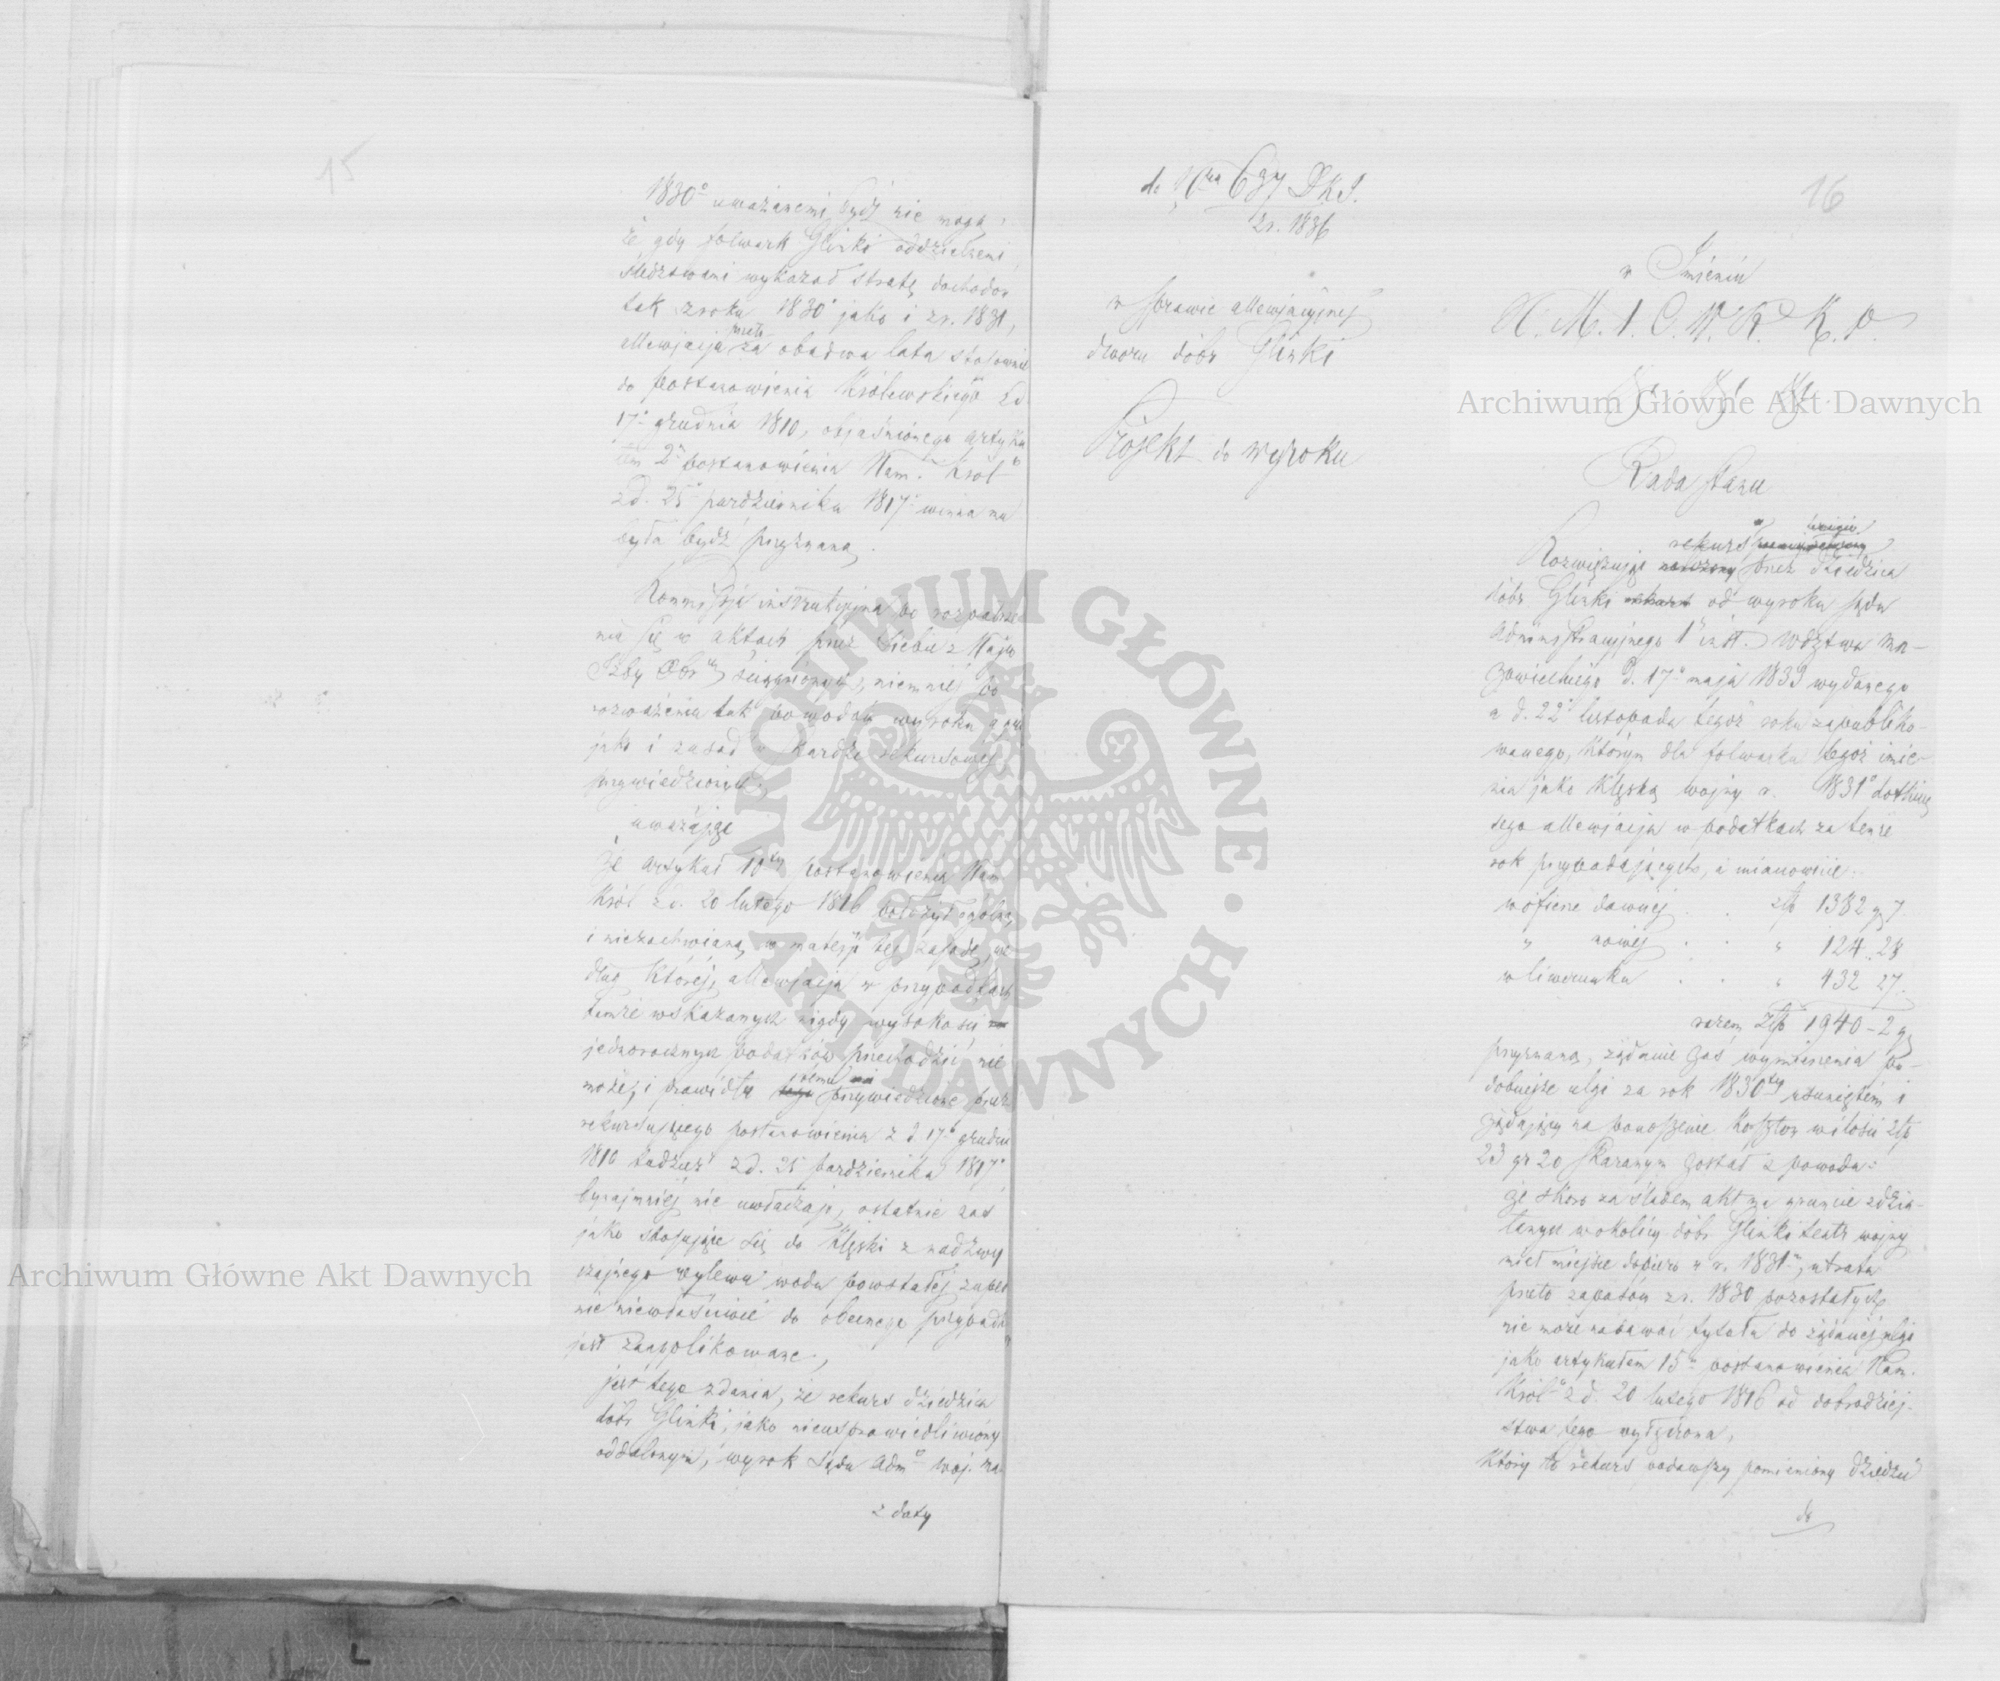 15
1830° uważanemi bydź nie mogą,
że gdy folwark Glinki oddzielnemi
śledztwami wykazał stratę dochodów
tak z roku 1830° jako i z r. 1831,
allewjacja przeto za obadwa lata stosownie
do postanowienia Królewskiego z d
17° grudnia 1810, objaśnionego artyku
łem 2m postanowienia Nam. Król°
z d. 25° października 1817° winna mu
była bydź przyznaną.
Kommissja instrukcyjna po rozpatrze
niu się w aktach przez siebie z Najw
Izby Obrwej ściągnionych, niemniej po
rozważeniu tak powodów wyroku
jako i zasad w skardze rekursowej
przywiedzionych.
uważając
Że artykuł 10ty postanowienia Nam
Król z d. 20 lutego 1816 położył ogólną
i niezachwianą w materji tej zasadę, we
dług której, allewjacja w przypadkach
tamże wskazanych nigdy wysokości
jednorocznych podatków przechodzić nie
może, i prawidłu temu przywiedzione przez
rekursującego postanowienia z d. 17° grudnia
1810 tudzież z d. 25 października 1817°
bynajmniej nie uwłaczają, ostatnie zaś
jako stosujące się do klęski z nadzwy
czajnego wylewu wody powstałej zupeł
nie niewłaściwie do obecnego przypadku
jest zaapplikowane,
jest tego zdania, że rekurs dziedzica
dóbr Glinki, jako nieusprawiedliwiony
oddalonym, wyrok Sądu Adm° Woj. Ma
z daty
do Nra 6 DKJ.
z r. 1836
w sprawie allewjacyjnej
dworu dóbr Glinki
Projekt do wyroku
16
w Imieniu
N. M. I. C. W. R. K. P.
Rada Stanu
Rozwiązując rekurs przez dziedzica
dóbr Glinki od wyroku Sądu
Administracyjnego 1ej inst. Wdztwa Ma-
zowieckiego d. 17° maja 1833 wydanego
a d. 22° listopada tegoż roku zapubliko-
wanego, którym dla folwarku tegoż imie-
nia jako klęską wojny r. 1831° dotknię
tego allewjacja w podatkach za tenże
rok przypadających, a mianowicie:
w ofierze dawnej . . złp 1382 gr 7
" nowej . . " 124. 28
w liwerunku . . " 432 27.
razem złp 1940 - 2 gr
przyznaną, żądanie zaś wymierzenia po-
dobnejże ulgi za rok 1830ty usuniętém i
żądający na ponoszenie kosztów w ilości złp
23 gr 20 skazanym został z powodu:
Że skoro za śladem akt na gruncie zdzia-
łanych w okolicy dóbr Glinki teatr wojny
miał miejsce dopiero w r. 1831m, utrata
przeto zapasów z r. 1830 pozostałych
nie może nadawać tytułu do żądanéj ulgi
jako artykułem 15m postanowienia Nam.
Król° z d. 20 lutego 1816 od dobrodziej-
stwa tego wyłączona,
Który to rekurs podawszy pomieniony dziedzic
do
Archiwum Główne Akt Dawnych
Archiwum Główne Akt Dawnych
ARCHIWUM GŁÓWNE · AKT DAWNYCH ·